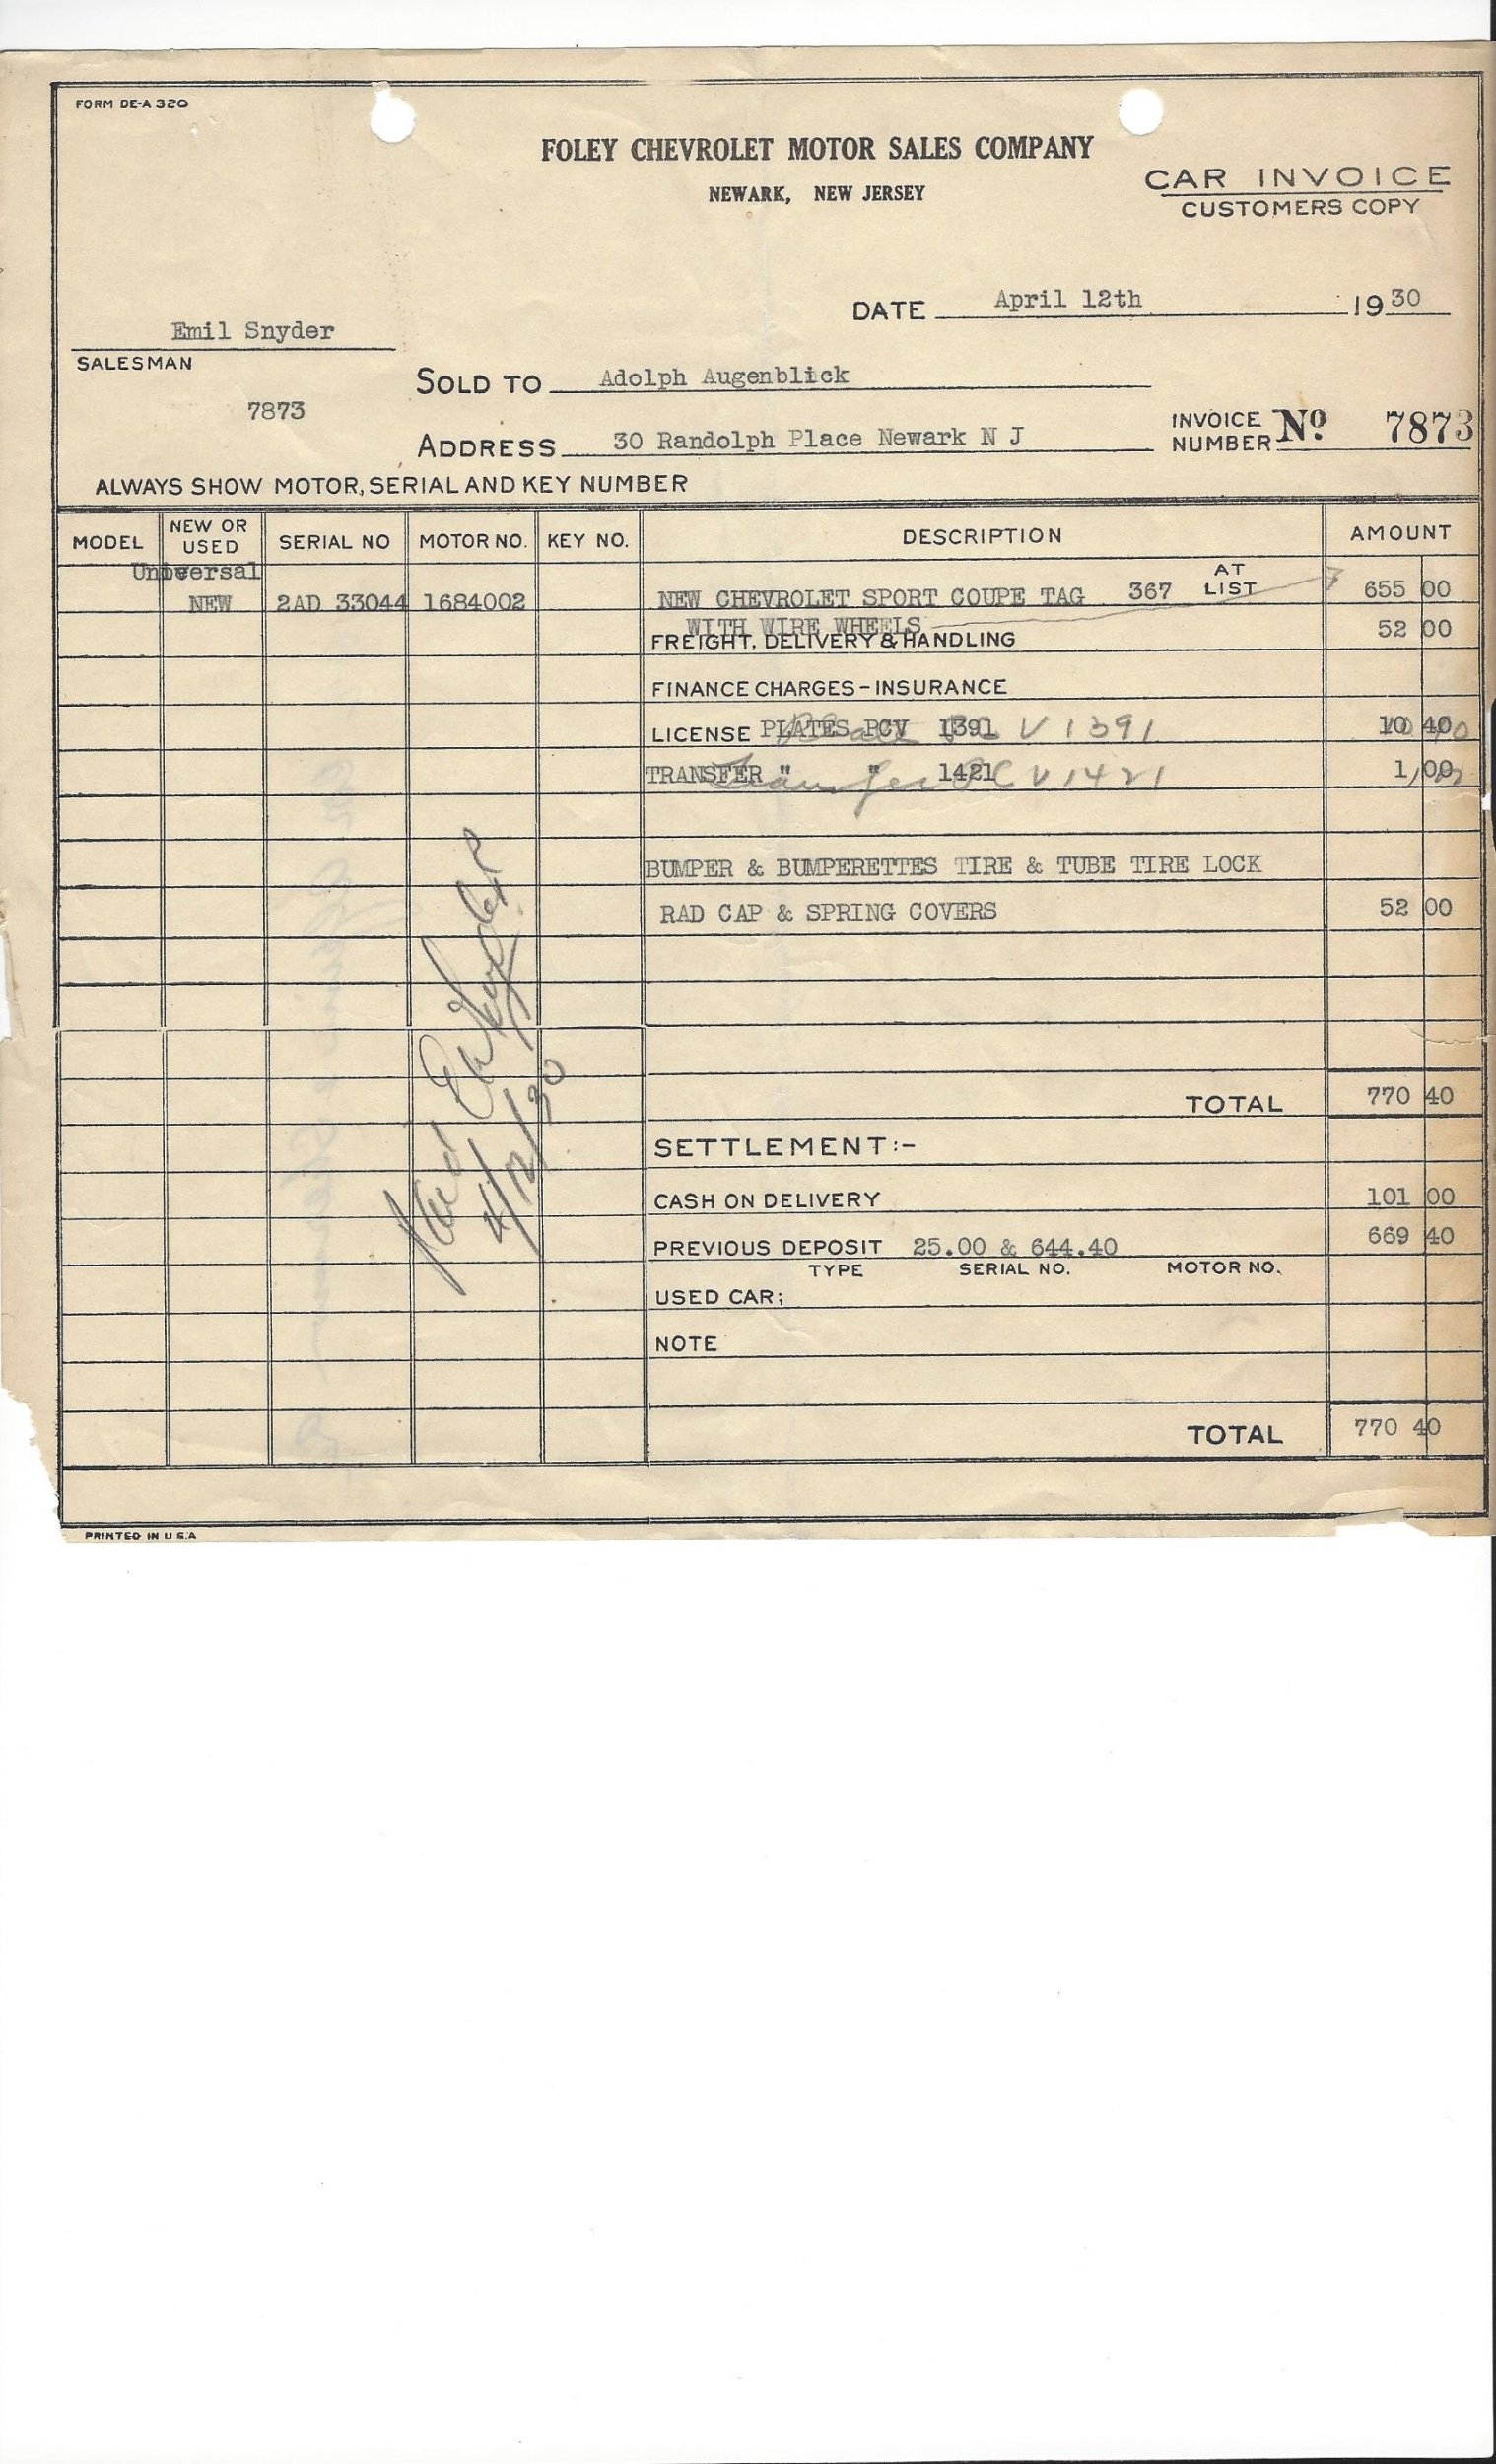 FORM DE-A 320
FOLEY CHEVROLET MOTOR SALES COMPANY
NEWARK, NEW JERSEY
CAR INVOICE
CUSTOMERS COPY
DATE April 12th 1930
Emil Snyder
SALESMAN
SOLD TO Adolph Augenblick
7873
ADDRESS 30 Randolph Place Newark N J
INVOICE NUMBER No 7873
ALWAYS SHOW MOTOR, SERIAL AND KEY NUMBER
MODEL NEW OR USED SERIAL NO MOTOR NO. KEY NO. DESCRIPTION AMOUNT
Universal
NEW 2AD 33044 1684002 NEW CHEVROLET SPORT COUPE TAG 367 AT LIST 655 00
WITH WIRE WHEELS
FREIGHT, DELIVERY & HANDLING 52 00
FINANCE CHARGES - INSURANCE
LICENSE PLATES PCV 1391 V1391 10 40
TRANSFER " " 1421 Transfer PCV1421 1,00
BUMPER & BUMPERETTES TIRE & TUBE TIRE LOCK
RAD CAP & SPRING COVERS 52 00
TOTAL 770 40
SETTLEMENT:-
CASH ON DELIVERY 101 00
PREVIOUS DEPOSIT 25.00 & 644.40 669 40
TYPE SERIAL NO. MOTOR NO.
USED CAR;
NOTE
TOTAL 770 40
Snyder
4/12/30
PRINTED IN U.S.A